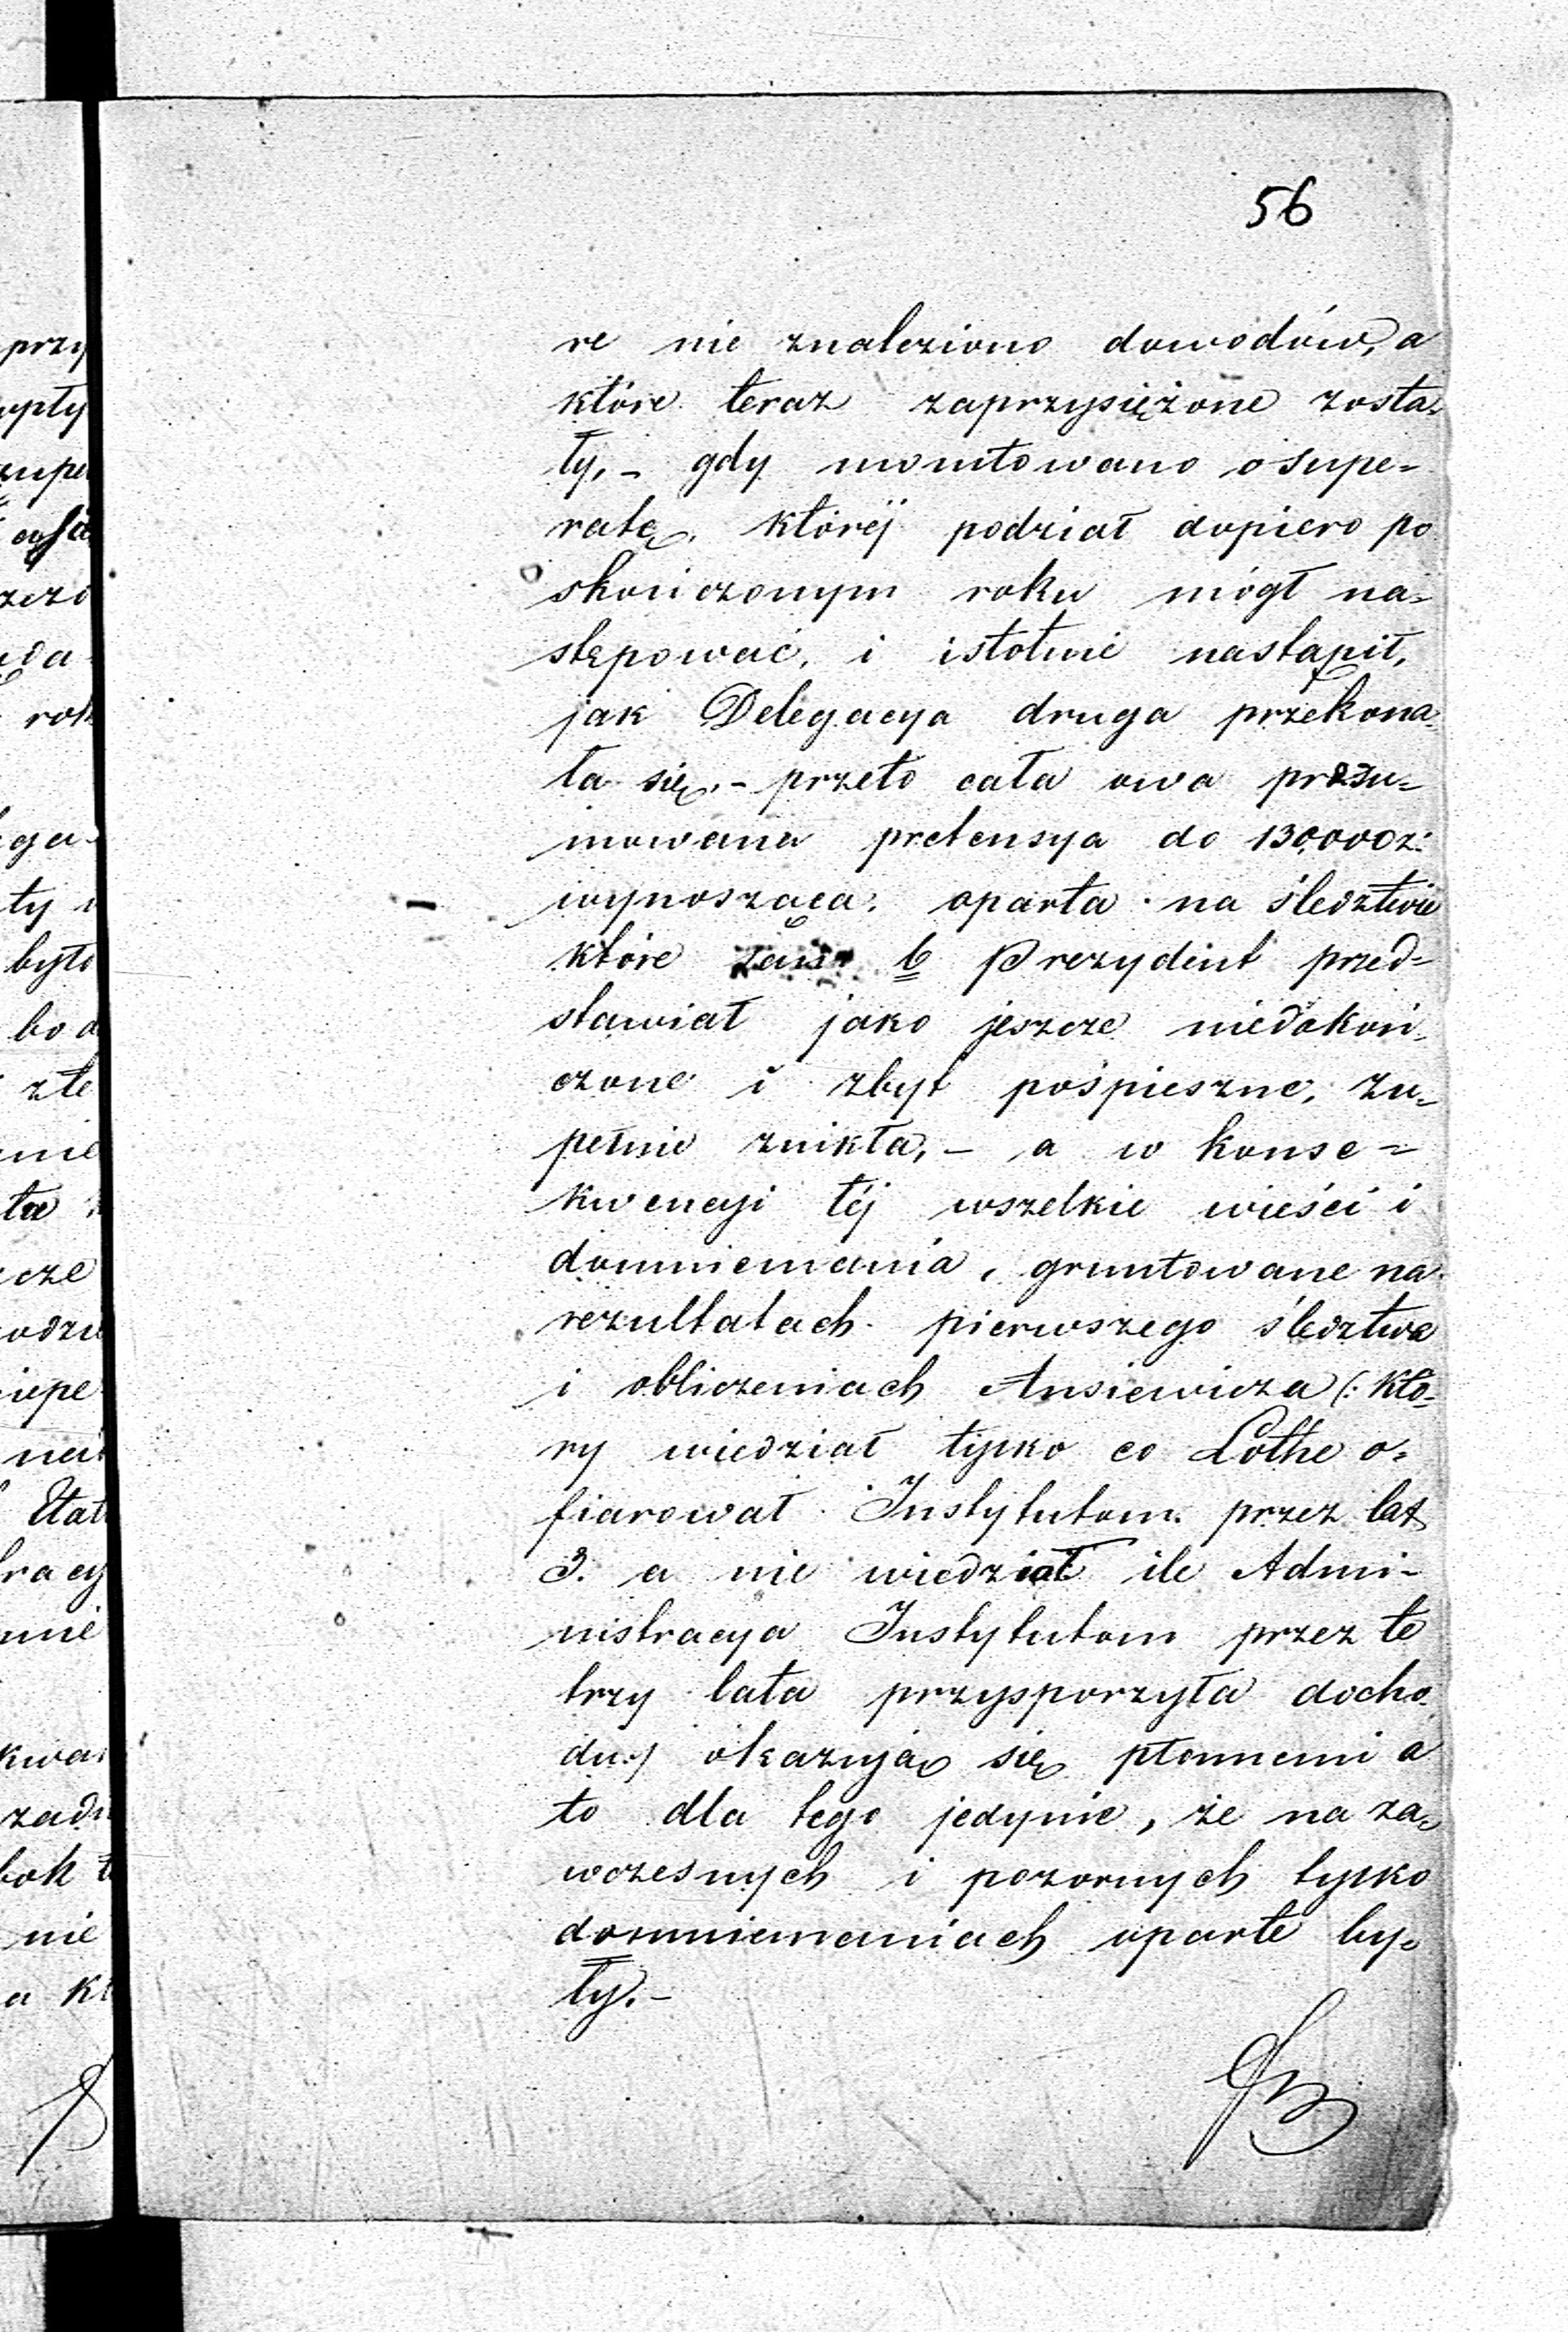 56
re nie znaleziono dowodów, a
które teraz zaprzysiężone zosta-
ły, – gdy monitowano o supe-
ratę, któréj podział dopiero po
skończonym roku mógł na-
stępować, i istotnie nastąpił,
jak Delegacya druga przekona-
ła się, – przeto cała owa prezu-
mowana pretensya do 130,000 z:
wynosząca, oparta na śledztwie
które zaś b Prezydent przed-
stawiał jako jeszcze niedokoń-
czone i zbyt pośpieszne, zu-
pełnie znikła, – a w konse-
kwencyi téj wszelkie wieści i
domniemania, gruntowane na
rezultatach pierwszego śledztwa
i obliczeniach Ansiewicza (: któ-
ry wiedział tylko co Lothe o-
fiarował Instytutom przez lat
3. a nie wiedział ile Admi-
nistracya Instytutom przez te
trzy lata przysporzyła docho-
du :) okazują się płonnemi a
to dla tego jedynie, że na za-
wczesnych i pozornych tylko
domniemaniach oparte by-
ły. –
przy
wpły
zupeł
rok
ga-
ły
było
bo
złe
nie
ta
cze
Etat
racy
nie
kwa
bok
nie
a